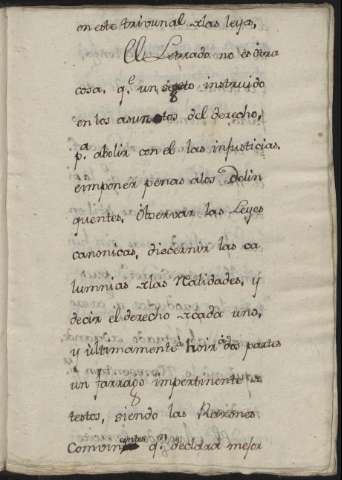 en este trivunal de las leyes,
El Letrado no es otra
cosa, q.e un sugeto instruido
en los asuntos del derecho,
p.a abolir con el las injusticias.
e imponer penas a los Delin
quentes, observar las Leyes
canonicas, discernir las ca
lumnias de las Realidades, y
decir el derecho de cada uno,
y ultimamente a huir de dos partes
un farrago impertinente de
testos, siendo las Razones
Convin q.e declara mejor